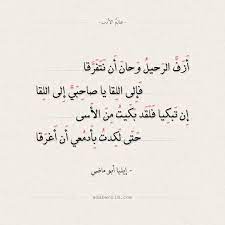 عالم الأدب
أَزِفَ الرَحيلُ وَحانَ أَن نَتَفَرَّقا
فَإِلى اللِقا يا صاحِبَيَّ إِلى اللِقا
إِن تَبكِيا فَلَقَد بَكَيتُ مِنَ الأَسى
حَتّى لَكِدتُ بِأَدمُعي أَن أَغرَقا
- إيليا أبو ماضي -
adabworld.com